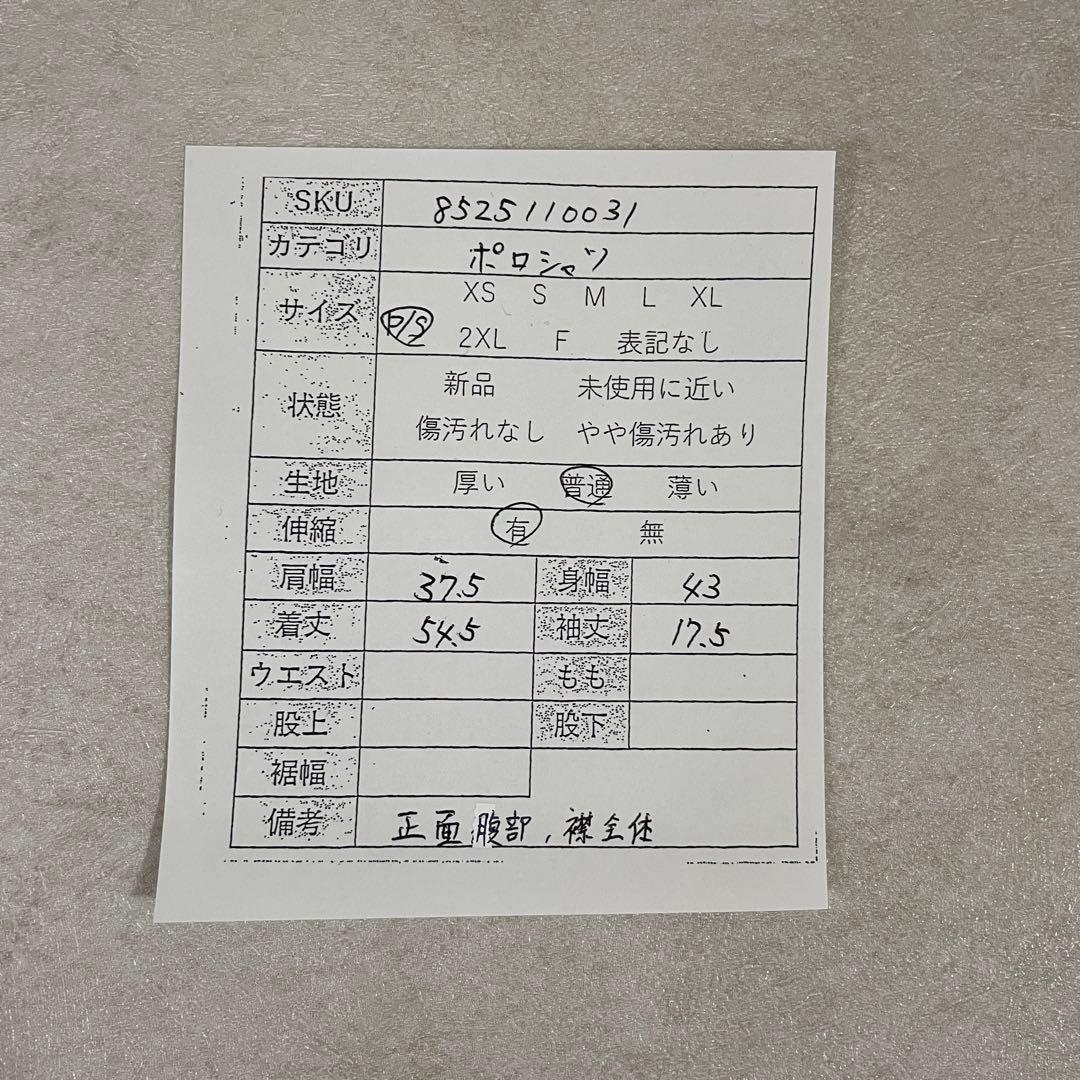 SKU 8525110031
カテゴリ ポロシャツ
サイズ XS S M L XL
P/S 2XL F 表記なし
状態 新品 未使用に近い
傷汚れなし やや傷汚れあり
生地 厚い 普通 薄い
伸縮 有 無
肩幅 37.5 身幅 43
着丈 54.5 袖丈 17.5
ウエスト もも
股上 股下
裾幅
備考 正面腹部、襟全体